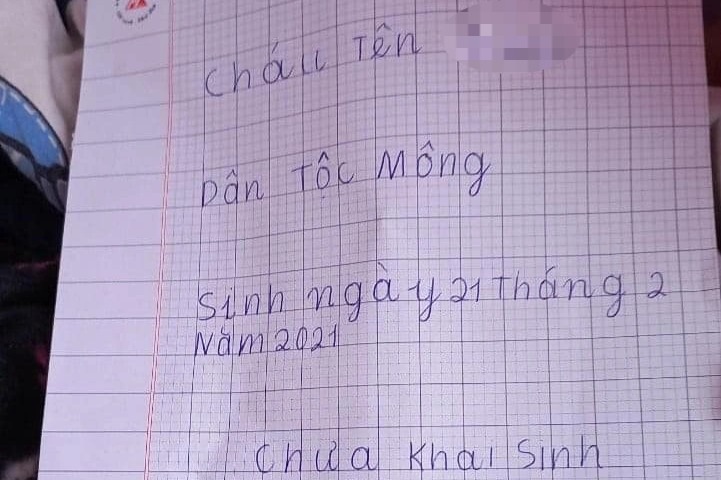 Cháu Tên
Dân Tộc Mông
Sinh ngày 21 tháng 2
Năm 2021
Chưa Khai Sinh